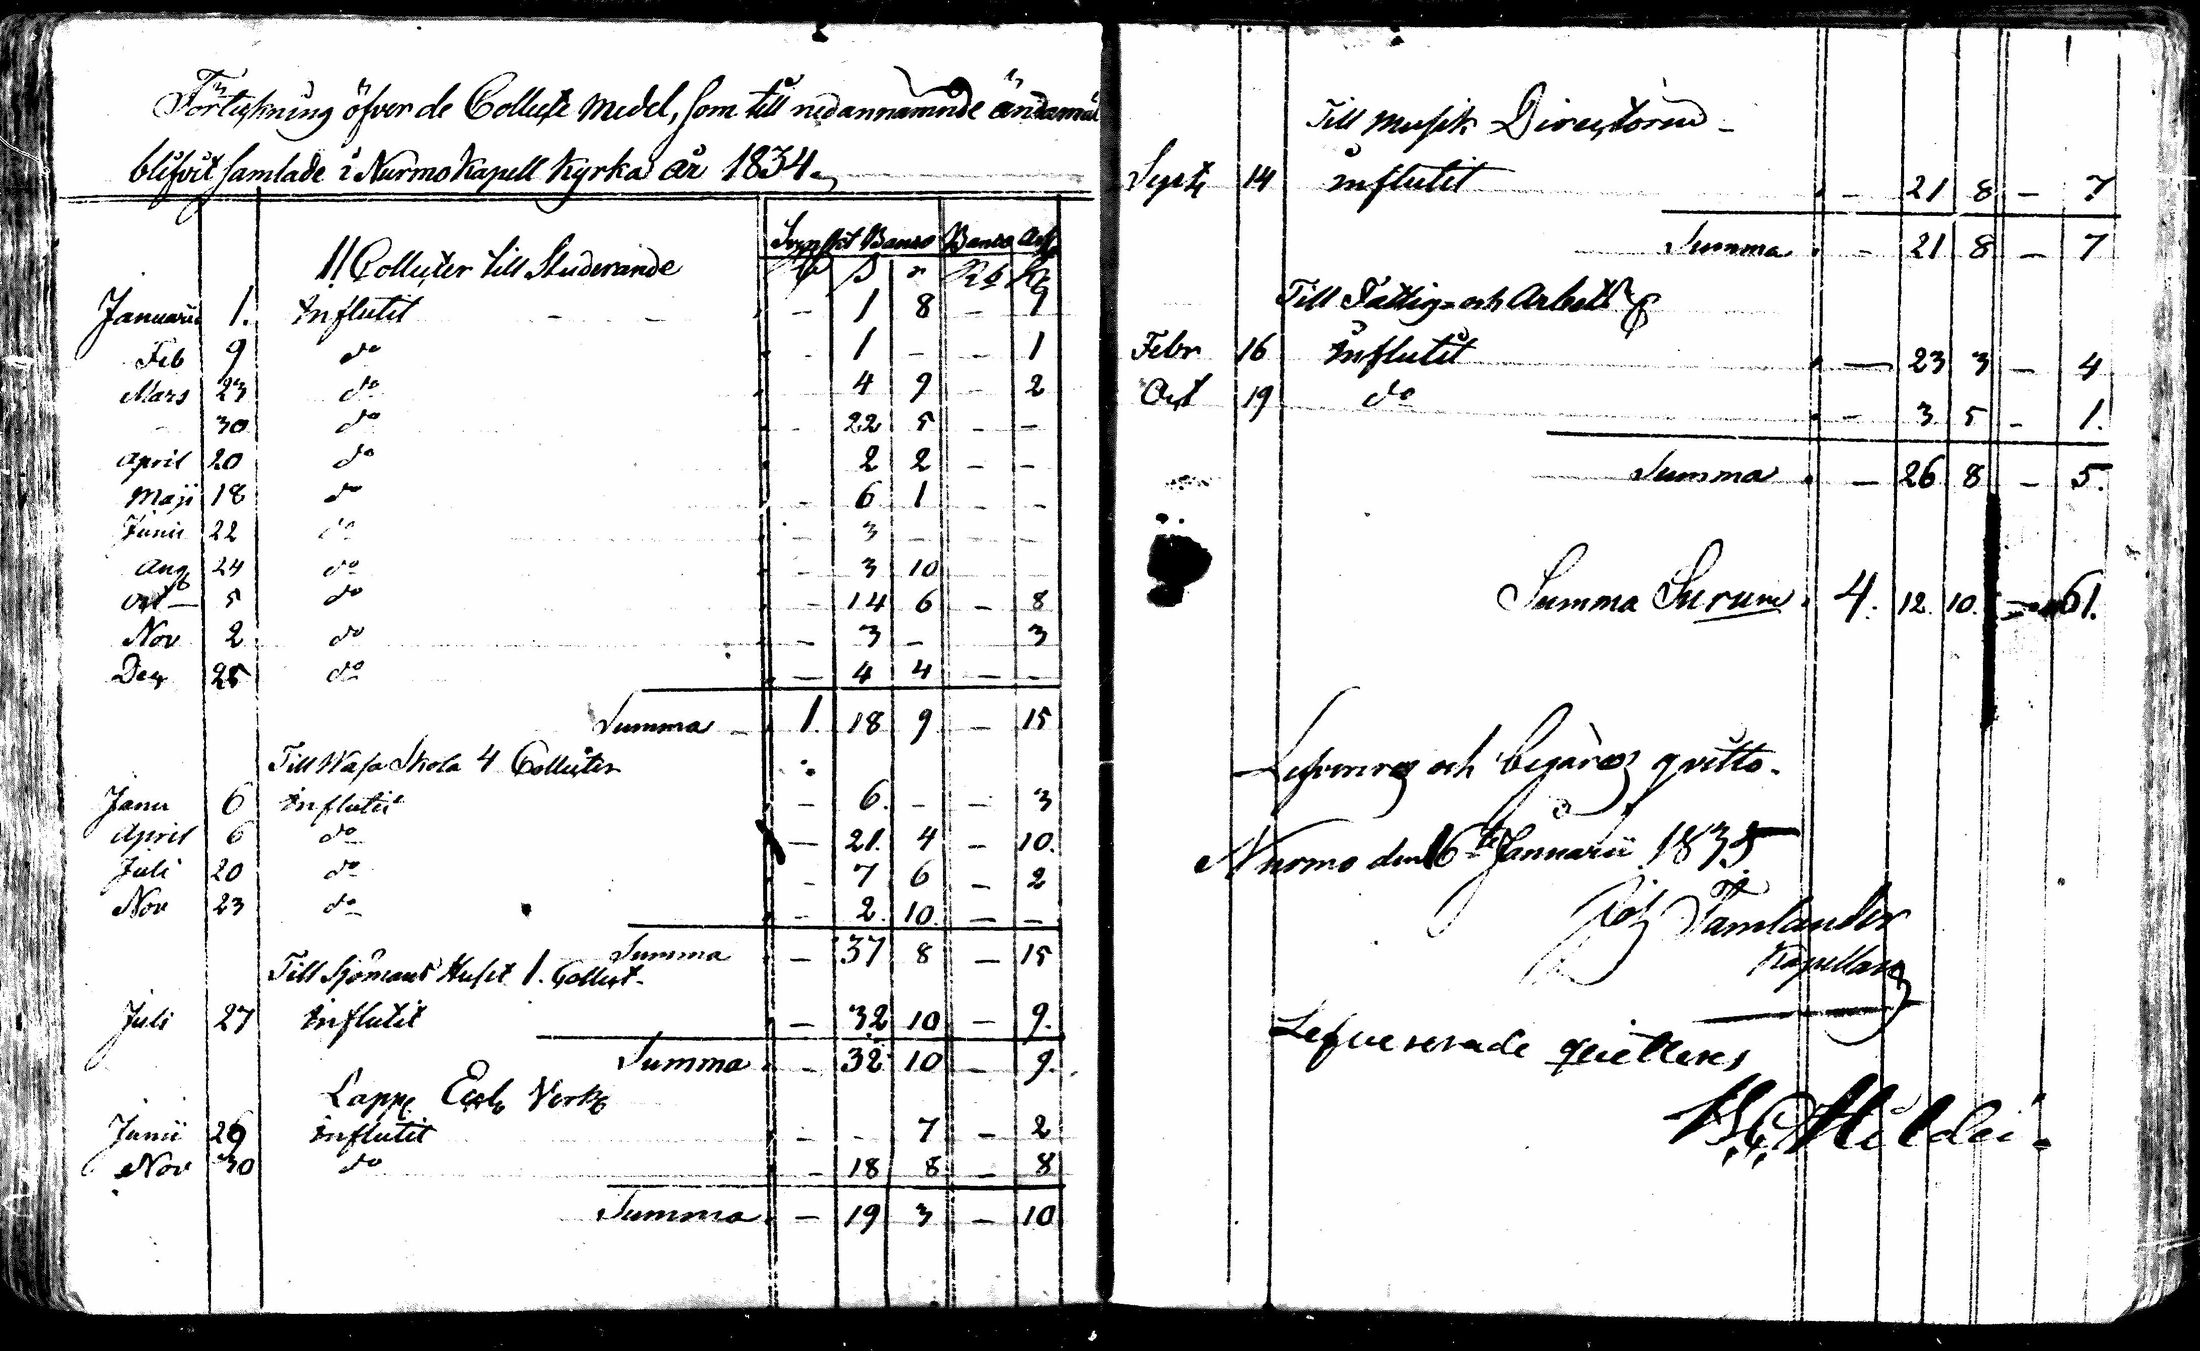 Förteckning öfver de Collect Medel, som till nedannämnde ändamål
blifvit samlade i Nurmo Kapell Kyrka år 1834.
Svenskt Banco Banco Ass
11 Collecter till Studerande
Januarii 1. Influtit - 1 8 - 1
Feb 9 do - 1 - - 1
Mars 23 do 4 9 - 2
30 do - 22 5 - -
April 20 do 2 2 - -
Maji 18 do - 6 1 - -
Junii 22 do - 3 - - -
Aug 24 do - 3 10
Oct 5 do - 14 6 - 8
Nov 2 do - 3 - 3
Dec 25 do - 4 4 - -
Summa 1. 18 9 - 15
Till Wasa Skola 4 Collecter
Janu 6 Influtit - 6. - - 3
April 6 do - 21. 4 - 10.
Juli 20 do - 7 6 - 2
Nov 23 do - 2. 10. - -
Summa - 37 8 - 15
Till Sjömans Huset 1. Collect.
Juli 27 Influtit - 32 10 - 9.
Summa - 32 10 - 9.
Lapp Eccl. Verk
Junii 29 Influtit - - 7 - 2
Nov 30 do - 18 8 - 8
Summa - 19 3 - 10
Till Musik Directoren
Sept 14 Influtit - 21 8 - 7
Summa - 21 8 - 7
Till Fattig- och Arbets
Febr 16 Influtit - 23 3 - 4
Oct 19 do - 3 5 - 1.
Summa - 26 8 - 5.
Summa Surum 4. 12. 10. - 61.
Lefvereras och begäres qvitto.
Nurmo den 16te Januarii 1835
Joh Tamlander
Kapellan
Lefvererade quitteras